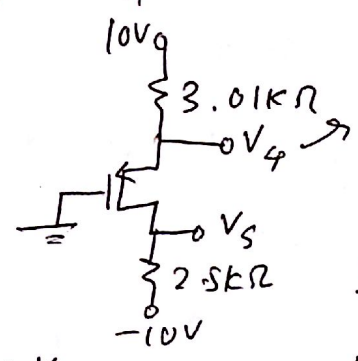 10V
3.01KΩ
V4
V5
2.5KΩ
-10V